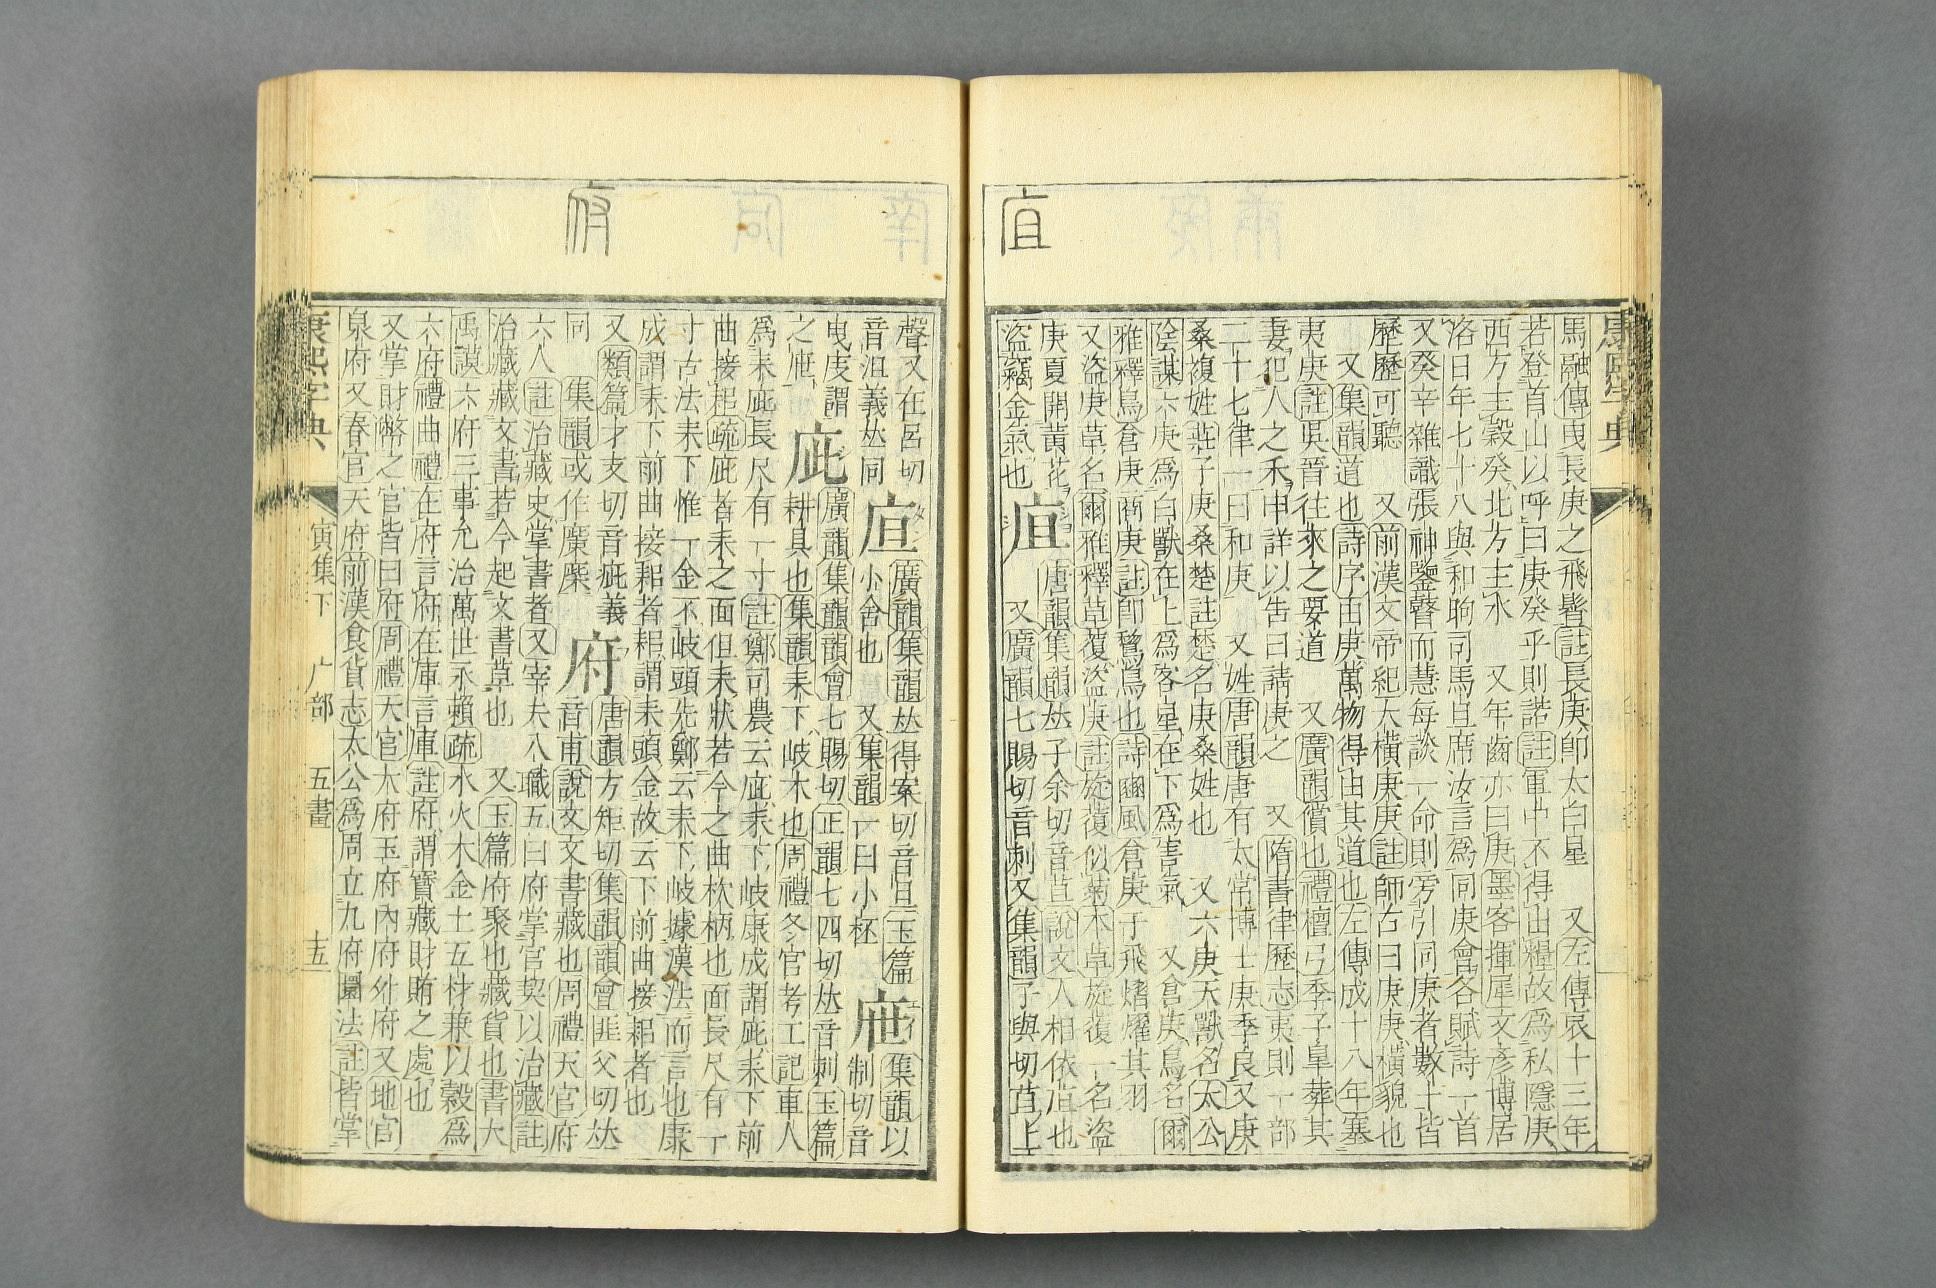 馬融傳曳長庚之飛髾註長庚卽太白星 又左傳哀十三年
若登首山以呼曰庚癸乎則諾註軍中不得出糧故爲私隱庚
西方主穀癸北方主水 又年齒亦曰庚墨客揮犀文彥博居
洛日年七十八與和昫司馬旦席汝言爲同庚會各賦詩一首
又癸辛雜識張神鑒瞽而慧每談一命則旁引同庚者數十皆
歷歷可聽 又前漢文帝紀大橫庚庚註師古曰庚庚橫貌也
又集韻道也詩序由庚萬物得由其道也左傳成十八年塞
夷庚註吳晉往來之要道 又廣韻償也禮檀弓季子皐葬其
妻犯人之禾申詳以告曰請庚之 又隋書律歷志夷則一部
二十七律一曰和庚 又姓唐韻唐有太常博士庚季良又庚
桑複姓莊子庚桑楚註楚名庚桑姓也 又六庚天獸名太公
陰謀六庚爲白獸在上爲客星在下爲害氣 又倉庚鳥名爾
雅釋鳥倉庚商庚註卽鵹鳥也詩豳風倉庚于飛熠燿其羽
又盜庚草名爾雅釋草蕧盜庚註旋蕧似菊本草旋蕧一名盜
庚夏開黃花
盜竊金氣也
㡹
唐韻集韻𠀤子余切音苴說文人相依㡹也
又廣韻七賜切音刺又集韻子與切苴上
聲又在呂切
音沮義𠀤同
廣韻集韻𠀤得案切音旦玉篇
小舍也 又集韻一曰小柸
集韻以
制切音
曳庋謂
之㡼
庛
廣韻集韻韻會七賜切正韻七四切𠀤音刺玉篇
耕具也集韻耒下岐木也周禮冬官考工記車人
爲耒庛長尺有一寸註鄭司農云庛耒下岐康成謂庛耒下前
曲接耜疏庛者耒之面但耒狀若今之曲杴柄也面長尺有一
寸古法耒下惟一金不岐頭先鄭云耒下岐據漢法而言也康
成謂耒下前曲接耜者耜謂耒頭金故云下前曲接耜者也
又類篇才支切音疵義
同 集韻或作𢊁㡸
府
唐韻方矩切集韻韻會匪父切𠀤
音甫說文文書藏也周禮天官府
六人註治藏史掌書者又宰夫八職五曰府掌官契以治藏註
治藏藏文書若今起文書草也 又玉篇府聚也藏貨也書大
禹謨六府三事允治萬世永賴疏水火木金土五材兼以穀爲
六府禮曲禮在府言府在庫言庫註府謂寶藏財賄之處也
又掌財幣之官皆曰府周禮天官大府玉府內府外府又地官
泉府又春官天府前漢食貨志太公爲周立九府圜法註皆掌
康熙字典
寅集下 广部 五畫